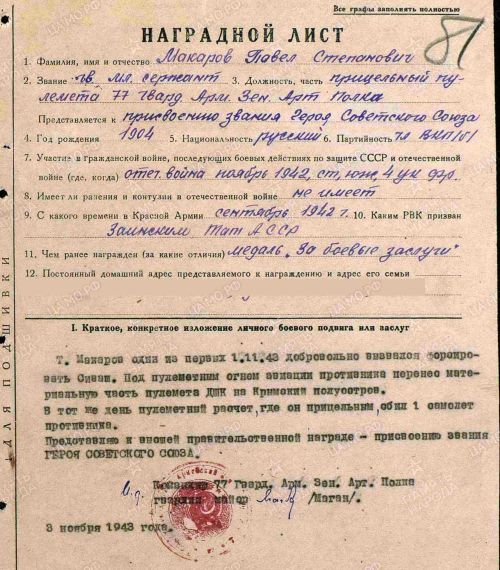 Все графы заполнять полностью
81
НАГРАДНОЙ ЛИСТ
1. Фамилия, имя и отчество Макаров Павел Степанович
2. Звание гв. мл. сержант 3. Должность, часть прицельный пу-
лемета 77 Гвард. Арм. Зен. Арт Полка
Представляется к присвоению звания Героя Советского Союза
4. Год рождения 1904 5. Национальность русский 6. Партийность чл ВКП/б/
7. Участие в гражданской войне, последующих боевых действиях по защите СССР и отечественной
войне (где, когда) отеч. война ноябрь 1942, ст, юж, 4 ук фр.
8. Имеет ли ранения и контузии в отечественной войне не имеет
9. С какого времени в Красной Армии сентябрь 1942 г. 10. Каким РВК призван
Заинским Тат АССР
11. Чем ранее награжден (за какие отличия) медаль "За боевые заслуги"
12. Постоянный домашний адрес представляемого к награждению и адрес его семьи
ДЛЯ ПОДШИВКИ
I. Краткое, конкретное изложение личного боевого подвига или заслуг
Т. Макаров один из первых 1.11.43 добровольно вызвался форсиро-
вать Сиваш. Под пулеметным огном авиации противника перенес мате-
риальную часть пулемета ДШК на Крымский полуостров.
В тот же день пулеметный расчет, где он прицельным, сбил 1 самолет
противника.
Представляю к высшей правительственной награде - присвоению звания
ГЕРОЯ СОВЕТСКОГО СОЮЗА.
И.д. Командира 77 Гвард. Арм. Зен. Арт. Полка
гвардии майор /Маган/.
3 ноября 1943 года.